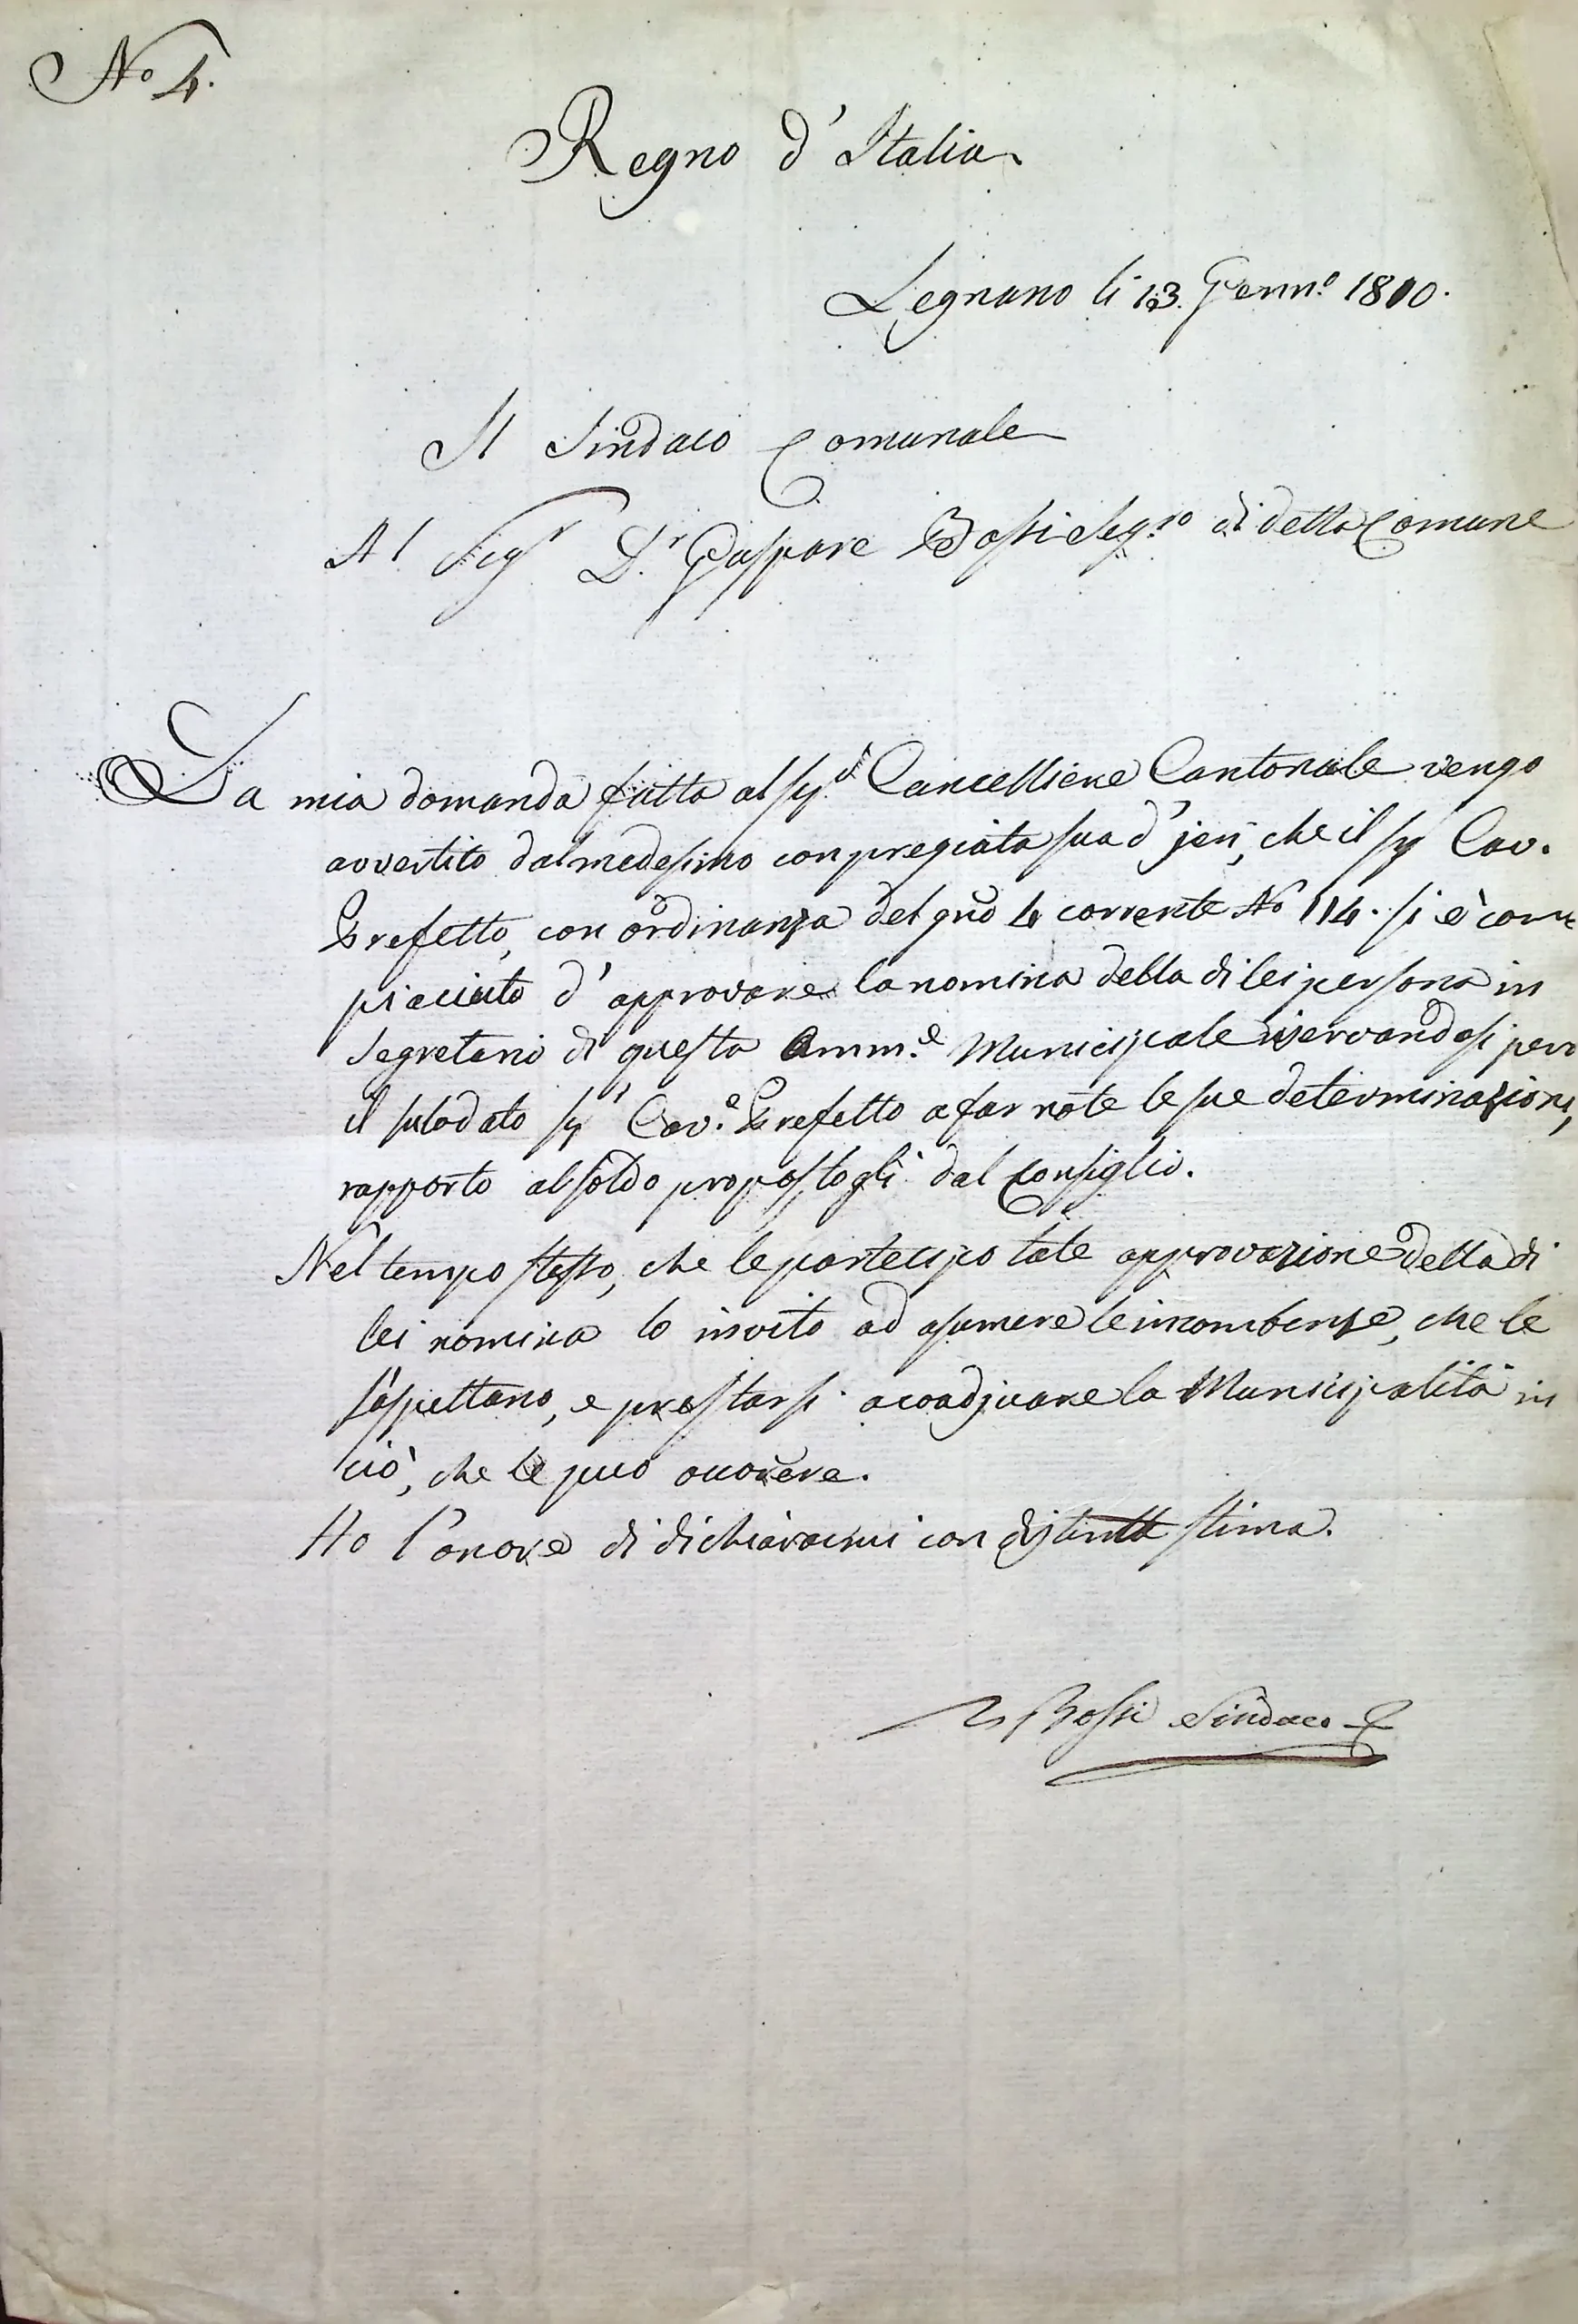 No 4.
Regno d'Italia
Legnano li 13. Genn.o 1810.
Il Sindaco Comunale
Al Sigr Dr. Gaspare Bossi Seg.rio di detta Comune
La mia domanda fatta al Sigr Cancelliere Cantonale vengo
avvertito dal medesimo con pregiata sua d'jeri, che il Sigr Cav.
Prefetto, con ordinanza del gno 4 corrente No 114. si è com
piaciuto d'approvare la nomina della di lei persona in
Segretario di questa Amm.e Municipale riservandosi però
il sulodato Sigr Cav.e Prefetto a far note le sue determinazioni,
rapporto al soldo propostogli dal Consiglio.
Nel tempo stesso, che le partecipo tale approvazione della di
lei nomina lo invito ad asumere le incombenze, che le
saspettano, e prestarsi a coadjuvare la Municipalità in
ciò, che le può occorere.
Ho l'onore di dichiararmi con distinta stima.
Bossi Sindaco